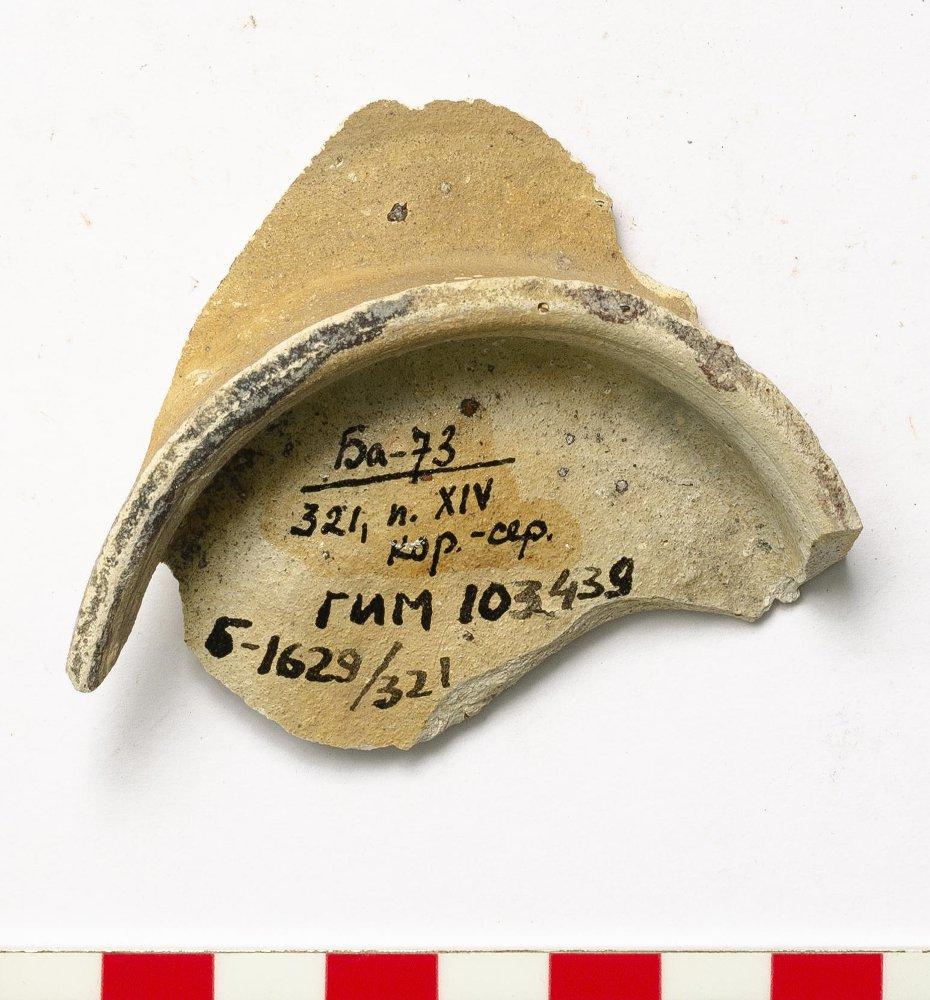 Ба-73
321, п. XIV
кор.-сер.
ГИМ 103439
Б-1629/321